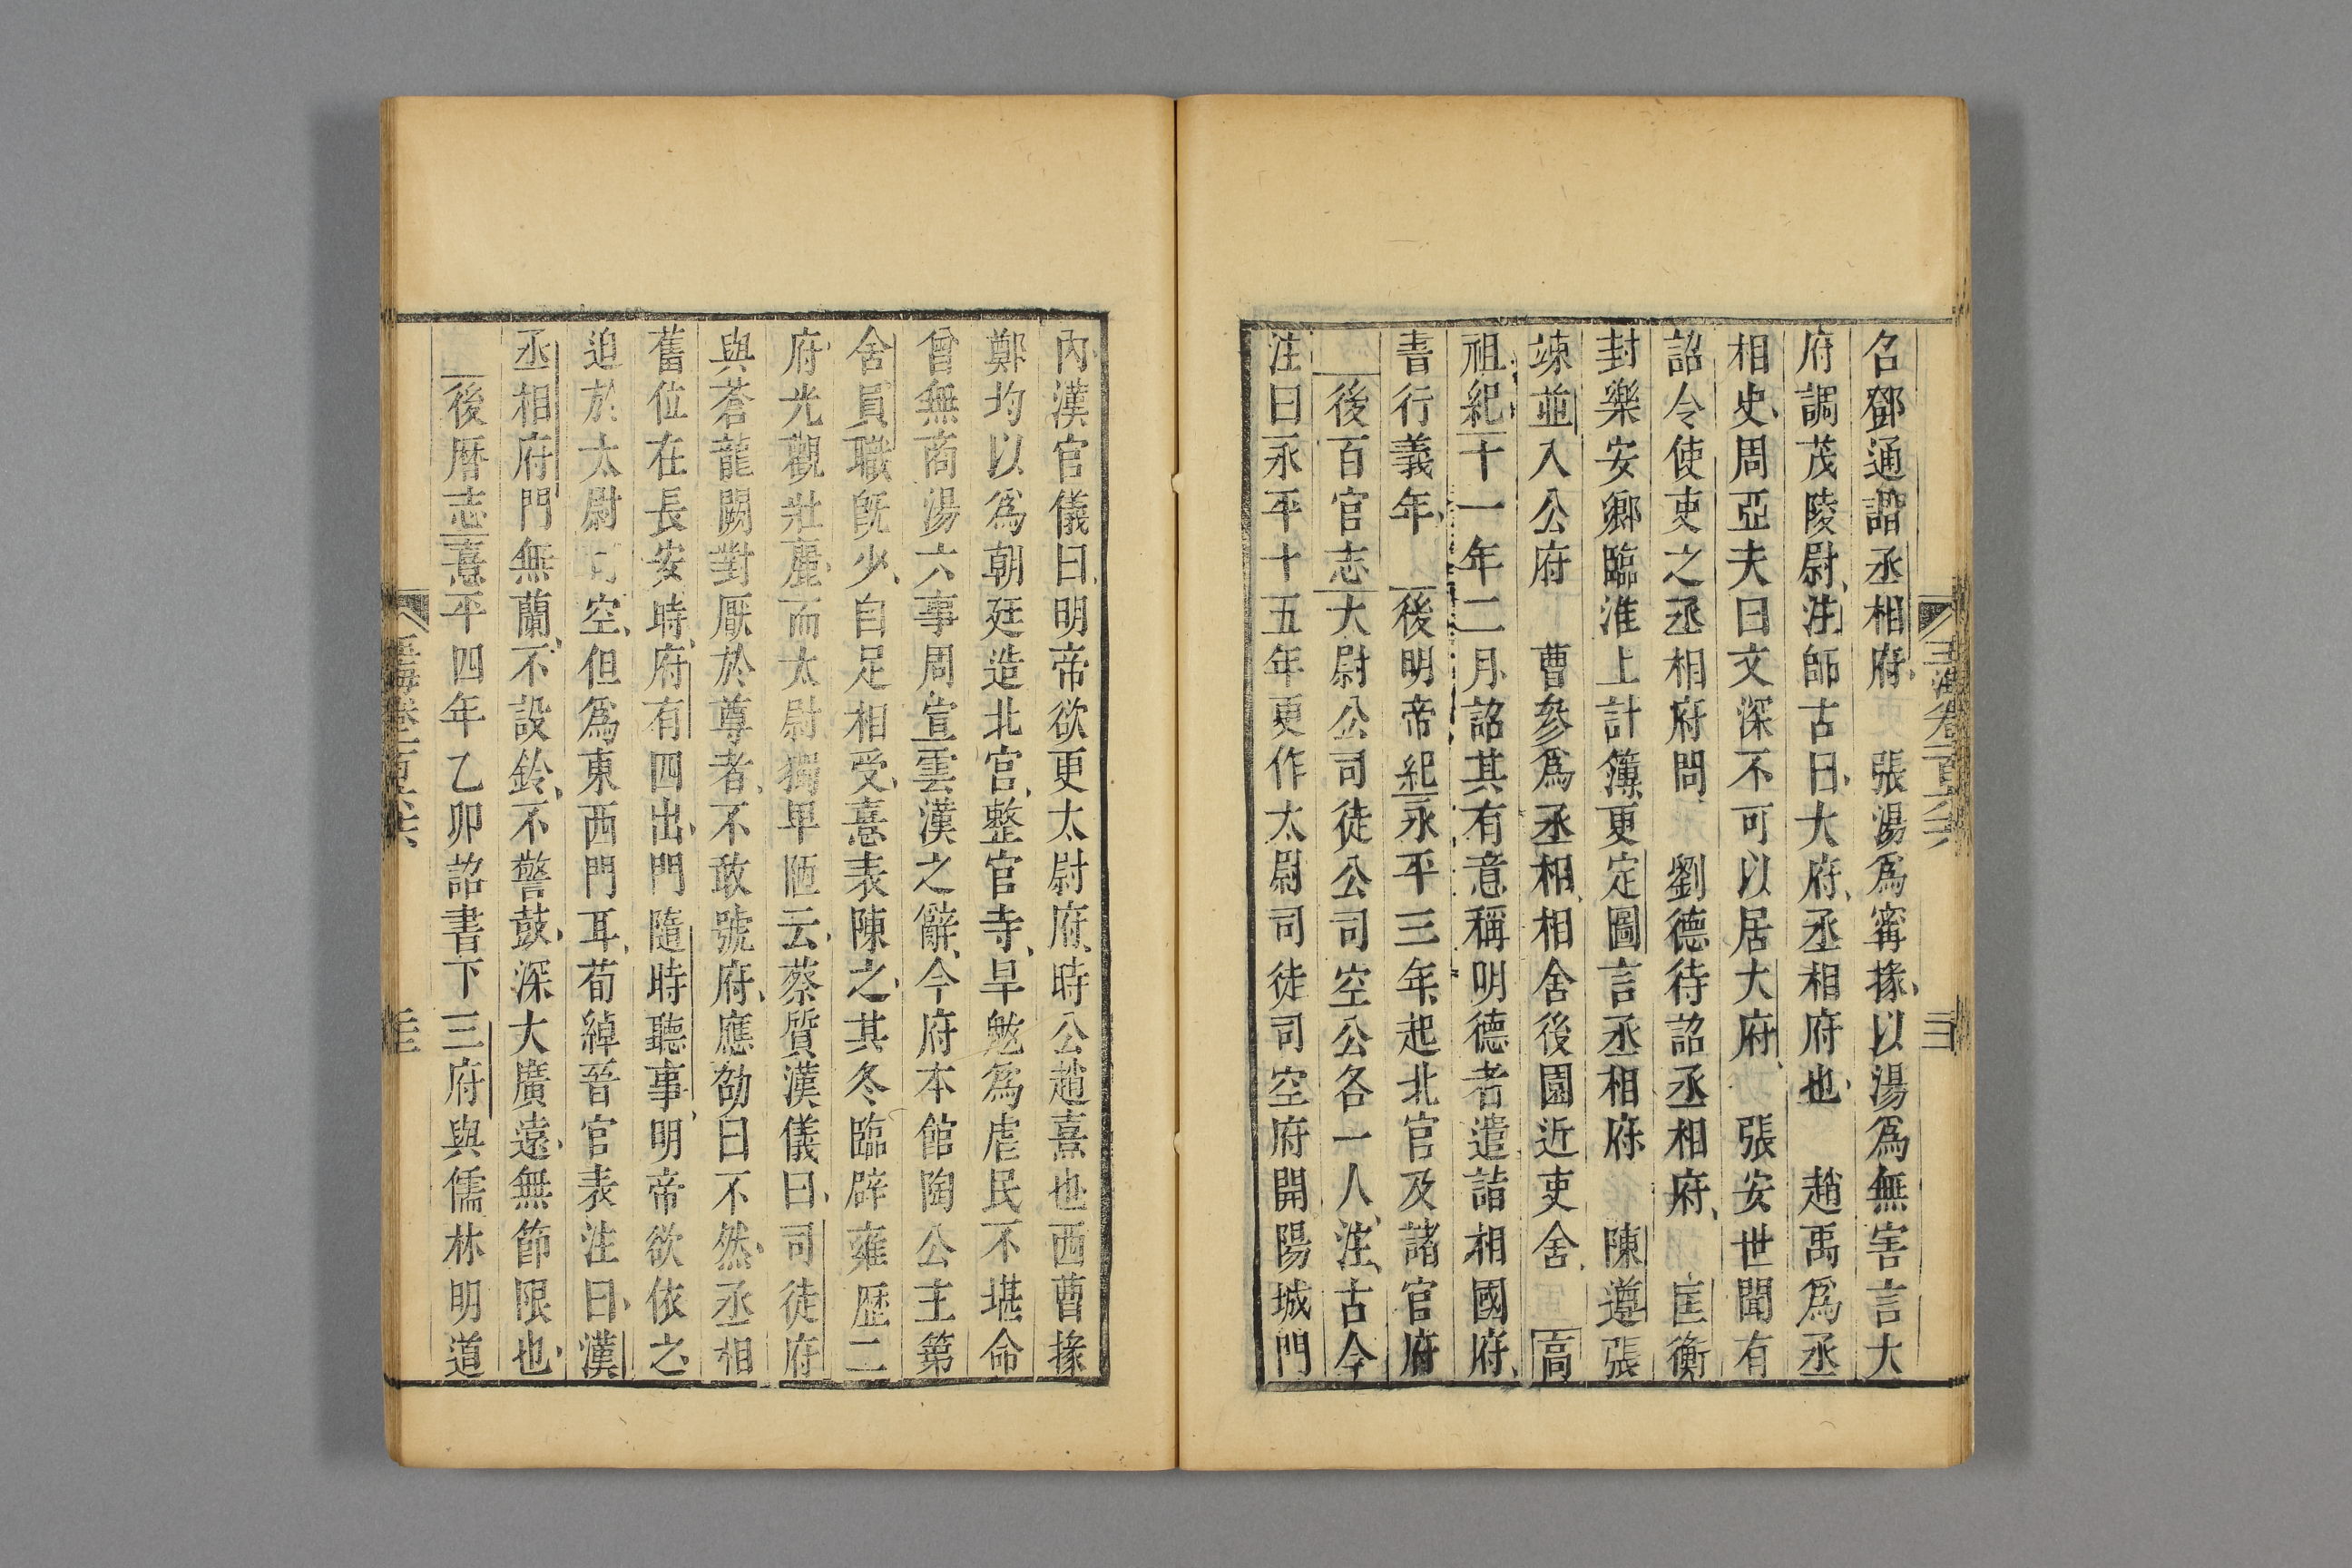 名鄧通詣丞相府　張湯爲甯掾以湯爲無害言大
府調茂陵尉注師古曰大府丞相府也　趙禹爲丞
相史周亞夫曰文深不可以居大府　張安世聞有
詔令使吏之丞相府問　劉德待詔丞相府　匡衡
封樂安鄉臨淮上計簿更定圖言丞相府　陳遵張
竦並入公府　曹參爲丞相相舍後園近吏舍　高
祖紀十一年二月詔其有意稱明德者遣詣相國府
書行義年　後明帝紀永平三年起北宫及諸官府
後百官志大尉公司徒公司空公各一人注古今
注曰永平十五年更作太尉司徒司空府開陽城門
内漢官儀曰明帝欲更太尉府時公趙憙也西曹掾
鄭均以爲朝廷造北宫整官寺旱魃爲虐民不堪命
曾無商湯六事周宣雲漢之辭今府本館陶公主第
舍員職旣少自足相受憙表陳之其冬臨辟雍歷二
府光觀壯麗而太尉獨卑陋云蔡質漢儀曰司徒府
與蒼龍闕對厭於尊者不敢號府應劭曰不然丞相
舊位在長安時府有四出門隨時聽事明帝欲依之
迫於太尉司空但爲東西門耳荀綽晉官表注曰漢
丞相府門無蘭不設鈴不警鼓深大廣遠無節限也
後曆志熹平四年乙卯詔書下三府與儒林明道